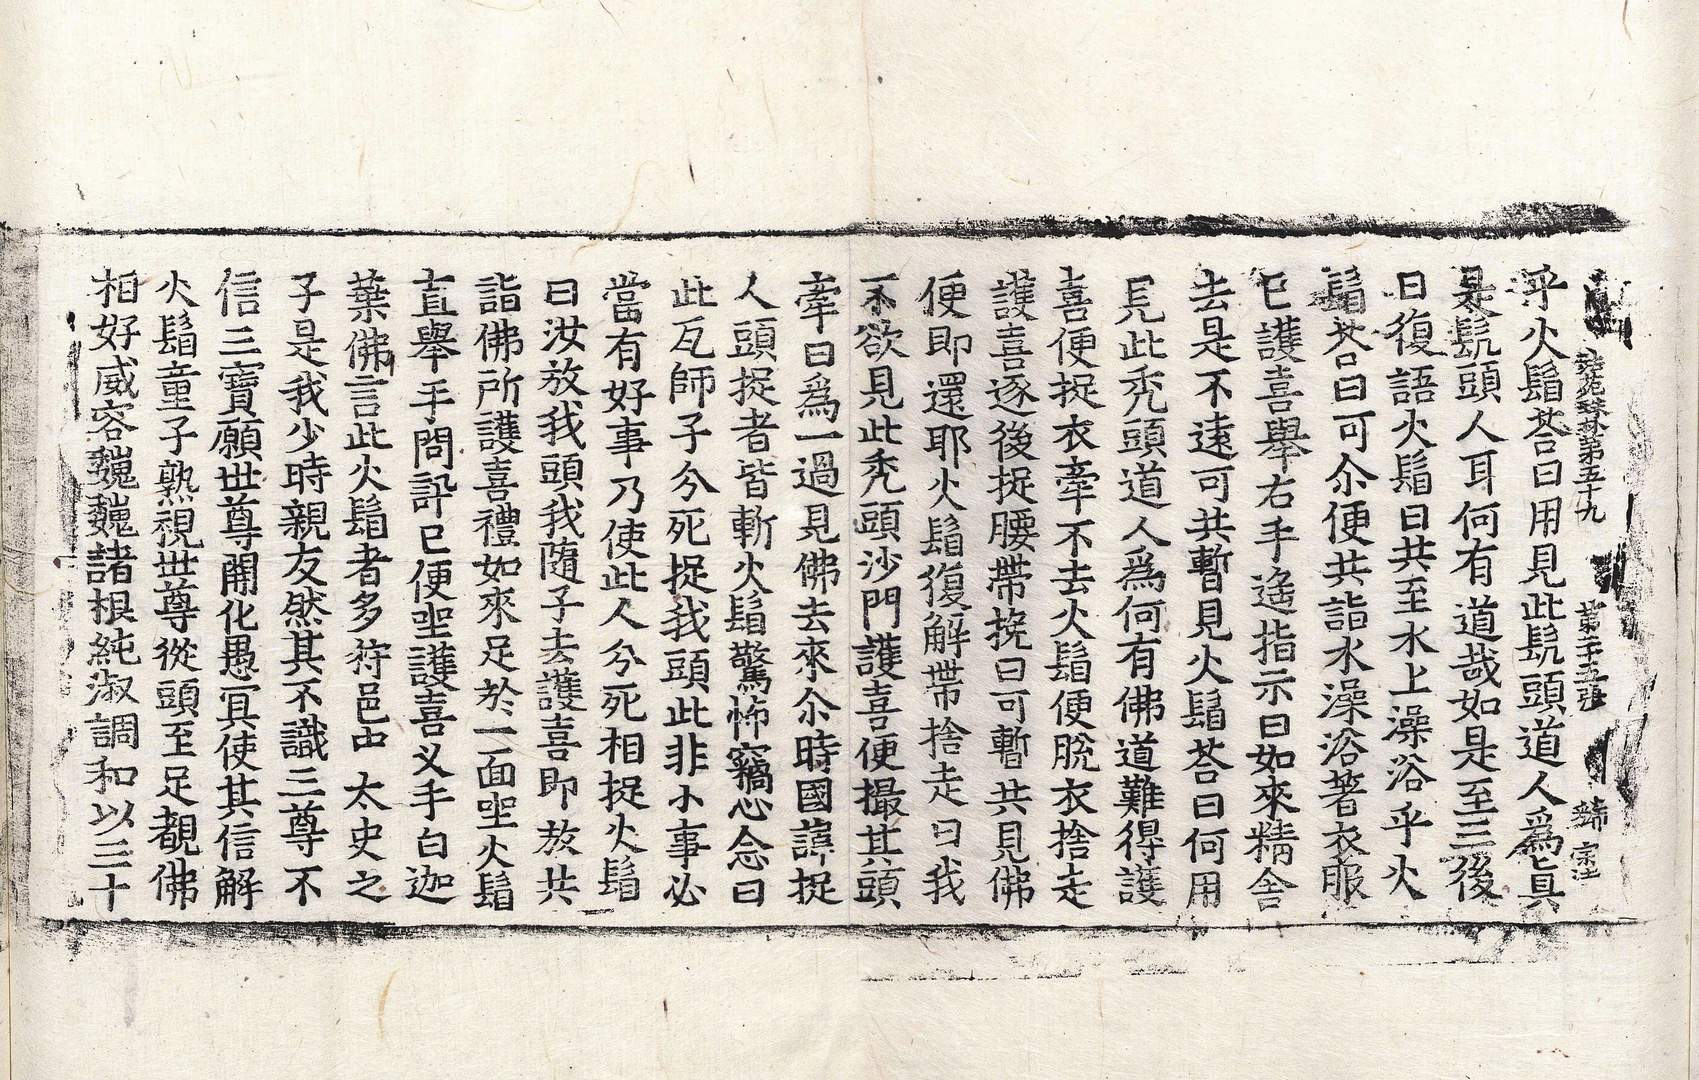 法苑珠林第五十九　第二十五張　辭字号
乎火鬘荅曰用見此髡頭道人爲真
是髡頭人耳何有道哉如是至三後
日復語火鬘曰共至水上澡浴乎火
鬘荅曰可尒便共詣水澡浴著衣服
已護喜舉右手遙指示曰如來精舍
去是不遠可共暫見火鬘荅曰何用
見此禿頭道人爲何有佛道難得護
喜便捉衣牽不去火鬘便脫衣捨走
護喜逐後捉腰帶挽曰可暫共見佛
便即還耶火鬘復解帶捨走曰我
不欲見此禿頭沙門護喜便撮其頭
牽曰爲一過見佛去來尒時國諱捉
人頭捉者皆斬火鬘驚怖竊心念曰
此瓦師子分死捉我頭此非小事必
當有好事乃使此人分死相捉火鬘
曰汝放我頭我隨子去護喜即放共
詣佛所護喜禮如來足於一面坐火鬘
直舉手問訊已便坐護喜叉手白迦
葉佛言此火鬘者多狩邑中太史之
子是我少時親友然其不識三尊不
信三寶願世尊開化愚冥使其信解
火鬘童子熟視世尊從頭至足覩佛
相好威容巍巍諸根純淑調和以三十